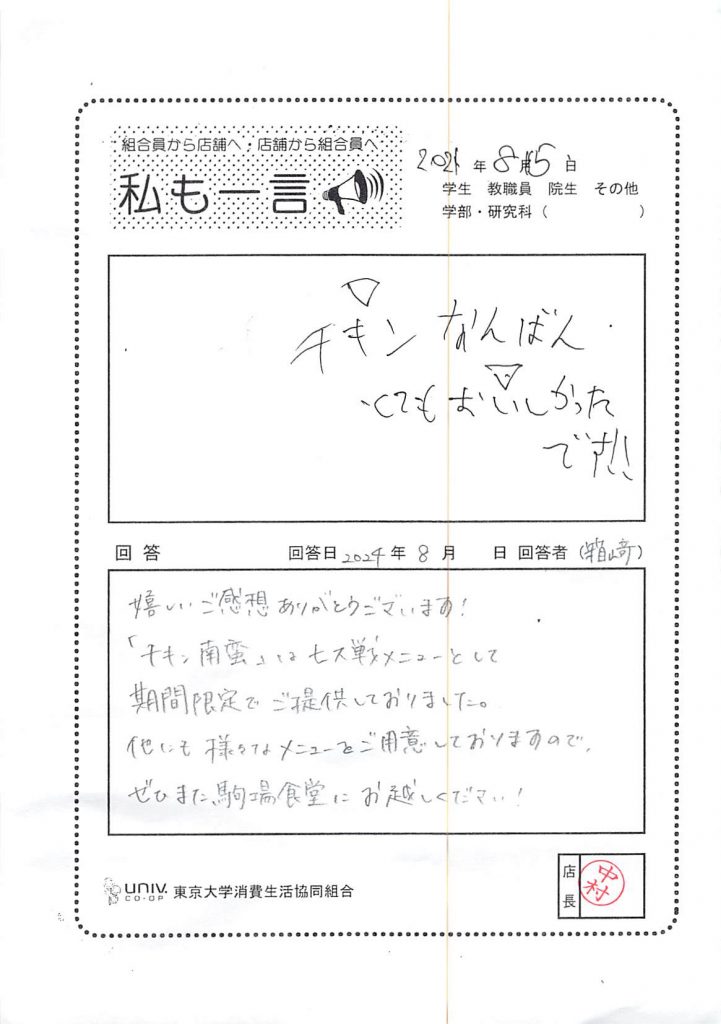 組合員から店舗へ・店舗から組合員へ
私も一言
2024年8月5日
学生 教職員 院生 その他
学部・研究科( )
チキンなんばん
とてもおいしかった
です!!
回答 回答日2024年8月 日 回答者(箱崎)
嬉しいご感想ありがとうございます!
「チキン南蛮」は七大戦メニューとして
期間限定でご提供しておりました。
他にも様々なメニューをご用意しておりますので、
ぜひまた、駒場食堂にお越しください!
UNIV. CO-OP 東京大学消費生活協同組合
店長 中村